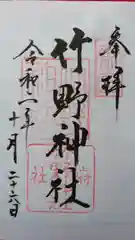 奉拝
竹野神社
令和二年
十月
二十六日